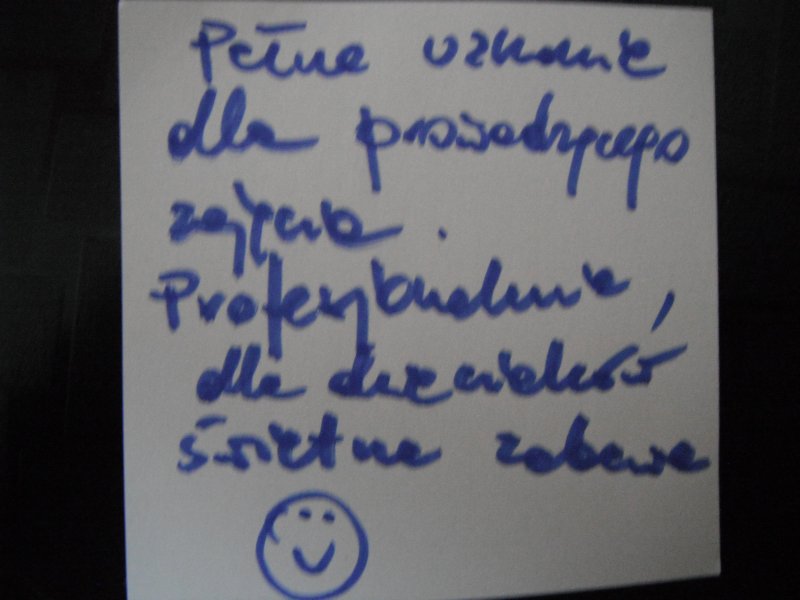 Pełne uznanie
dla prowadzącego
zajęcia.
Profesjonalnie,
dla dzieciaków
świetna zabawa